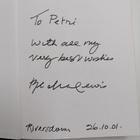 To Petri
with all my
very best wishes
Lewis
Amsterdam 26.10.01.